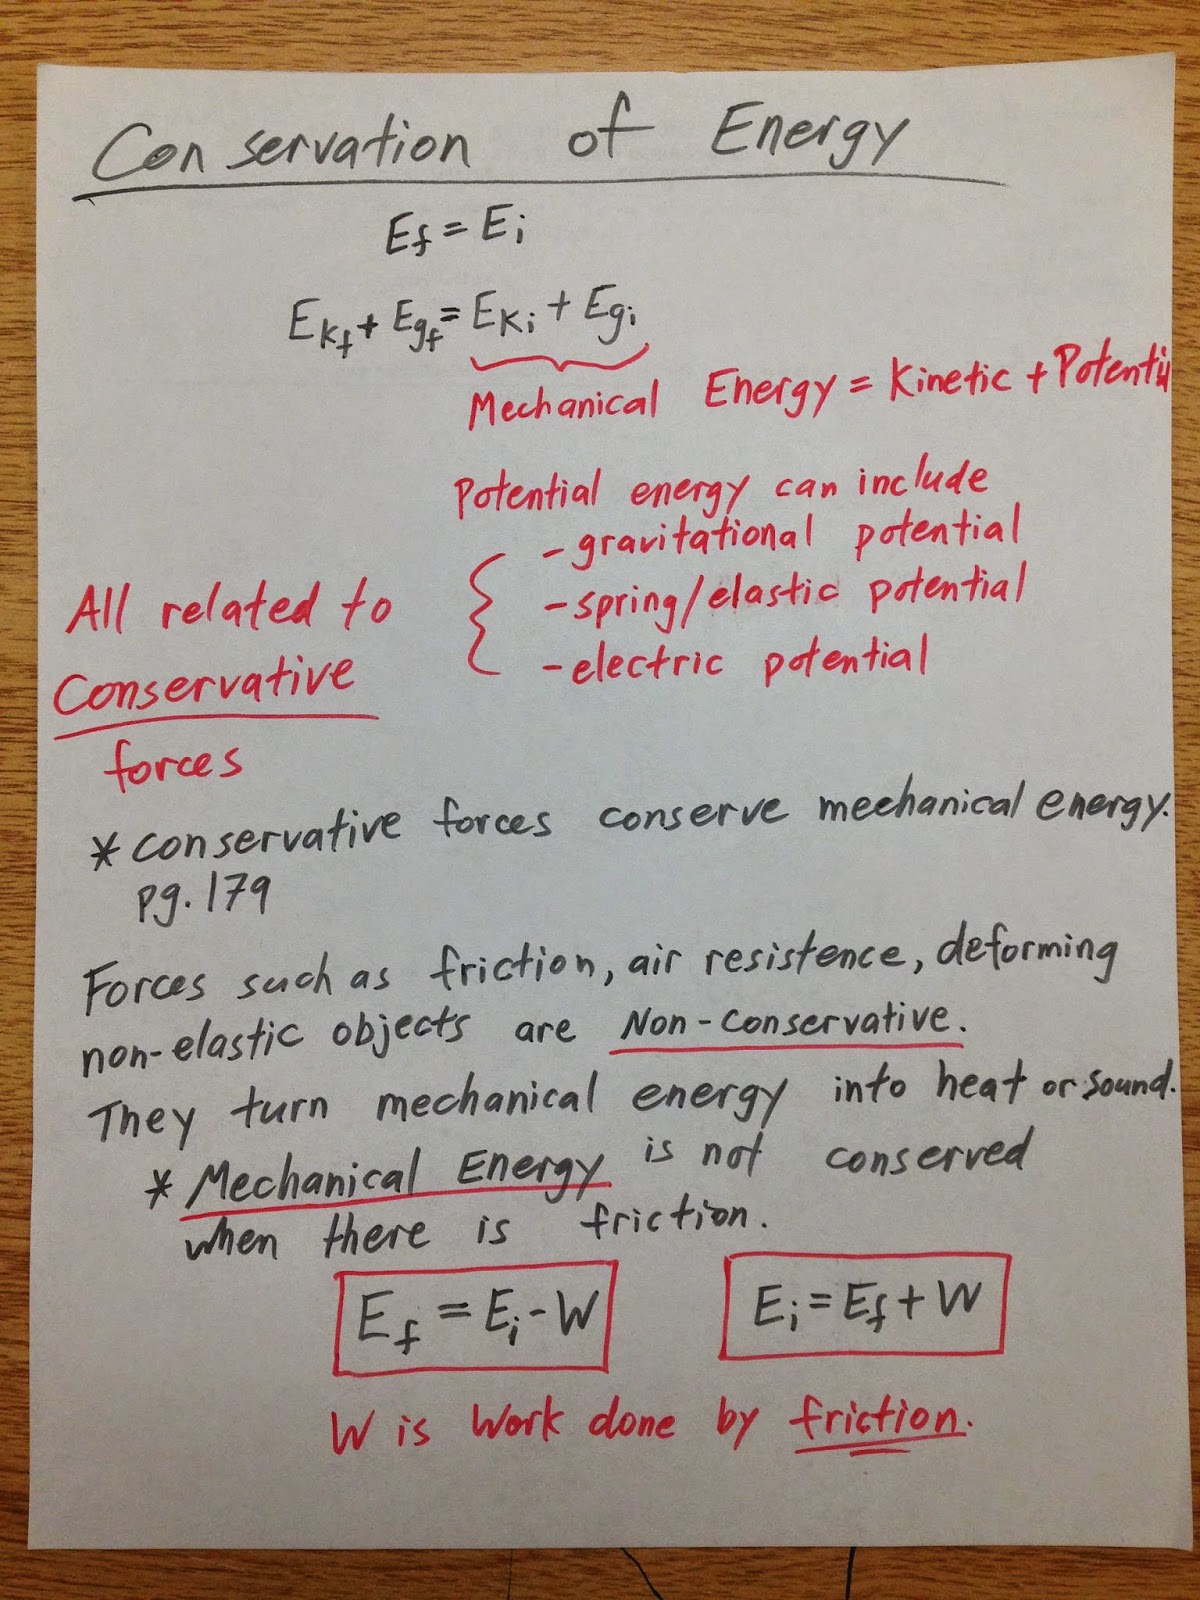 Conservation of Energy
Ef = Ei
Ekf + Egf = Eki + Egi
Mechanical Energy = Kinetic + Potenti
Potential energy can include
- gravitational potential
- spring/elastic potential
- electric potential
All related to
Conservative
forces
* conservative forces conserve mechanical energy.
pg. 179
Forces such as friction, air resistence, deforming
non-elastic objects are Non-conservative.
They turn mechanical energy into heat or sound.
* Mechanical Energy is not conserved
when there is friction.
Ef = Ei - W
Ei = Ef + W
W is work done by friction.